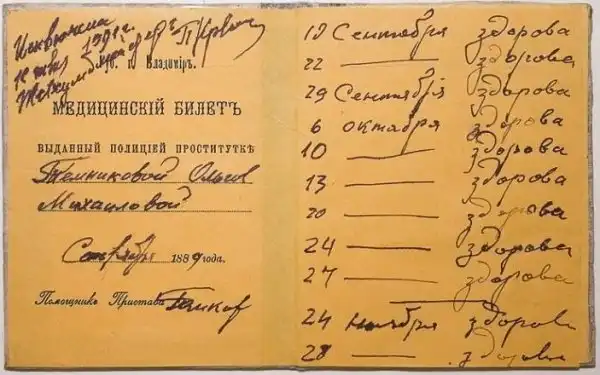 Исключена
губ. г. Владиміръ.
МЕДИЦИНСКІЙ БИЛЕТЪ
ВЫДАННЫЙ ПОЛИЦІЕЙ ПРОСТИТУТКѢ
Темниковой Ольгѣ
Михаиловой
Сентября 1889 года.
Помощникъ Пристава
19 Сентября здорова
22 — здорова
29 Сентября здорова
6 октября здорова
10 — здорова
13 — здорова
20 — здорова
24 — здорова
27 — здорова
24 Ноября здорова
28 — здорова